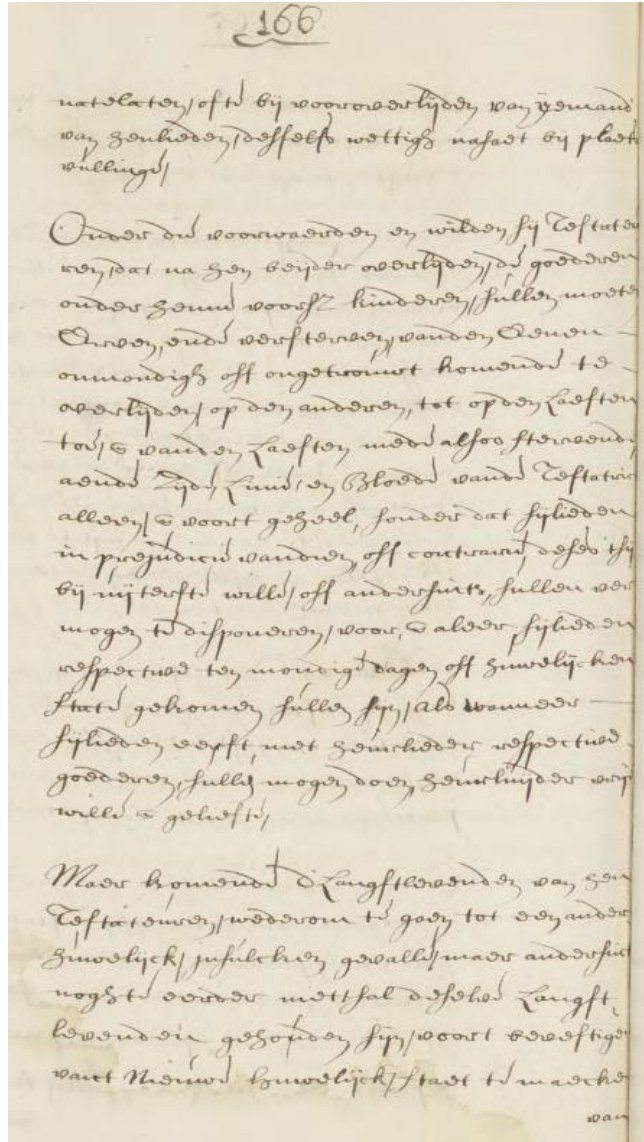 166
natelaten, ofte bij vooroverlijden van ijemand
van henlieden, desselfs wettigh nasaet bij plaets
vullinge,
Onder die voorwaerden en wilden sij Testateu
ren, dat na hen beijder overlijden, de goederen
onder henne voorsz kinderen, sullen moeten
Erven, ende versterven, vanden Eenen
onmondigh off ongetrouwt komende te
overlijden, op den anderen, tot op den Laesten
toe, & vanden Laesten mede alsoo stervend,
aende zijde, Linie, en Bloede vande Testatrice
alleen, & voort geheel, sonder dat sijlieden
in prejudicie vandien, off contrarie deses
bij uijterste wille, off andersints, sullen ver
mogen te disponeren, voor, & aleer sijlieden
respective ten mondige dagen off huwelijcken
state gekomen sullen sijn, als wanneer
sijlieden eerst, met heurlieder respective
goederen, sullen mogen doen, heurluijder vrije
wille & geliefte,
Maer komende d'Langstlevenden van hen
Testateuren, wederom te gaen tot een ander
huwelijck, insulcken gevalle, maer andersints
noghte eerder niet, sal deselve Langst
levenden gehouden sijn, voort bevestigen
vant Nieuwe huwelijck, staet te maecken
van